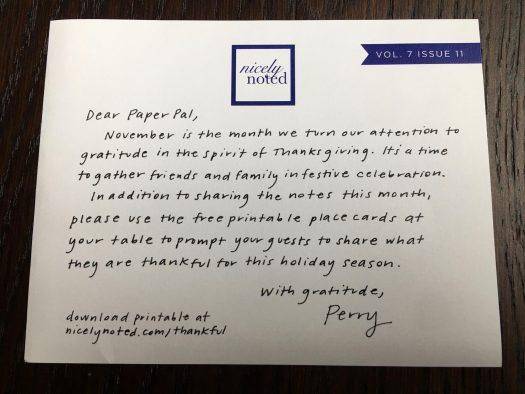 nicely
noted
VOL. 7 ISSUE 11
Dear Paper Pal,
November is the month we turn our attention to
gratitude in the spirit of Thanksgiving. It's a time
to gather friends and family in festive celebration.
In addition to sharing the notes this month,
please use the free printable place cards at
your table to prompt your guests to share what
they are thankful for this holiday season.
With gratitude,
Perry
download printable at
nicelynoted.com/thankful